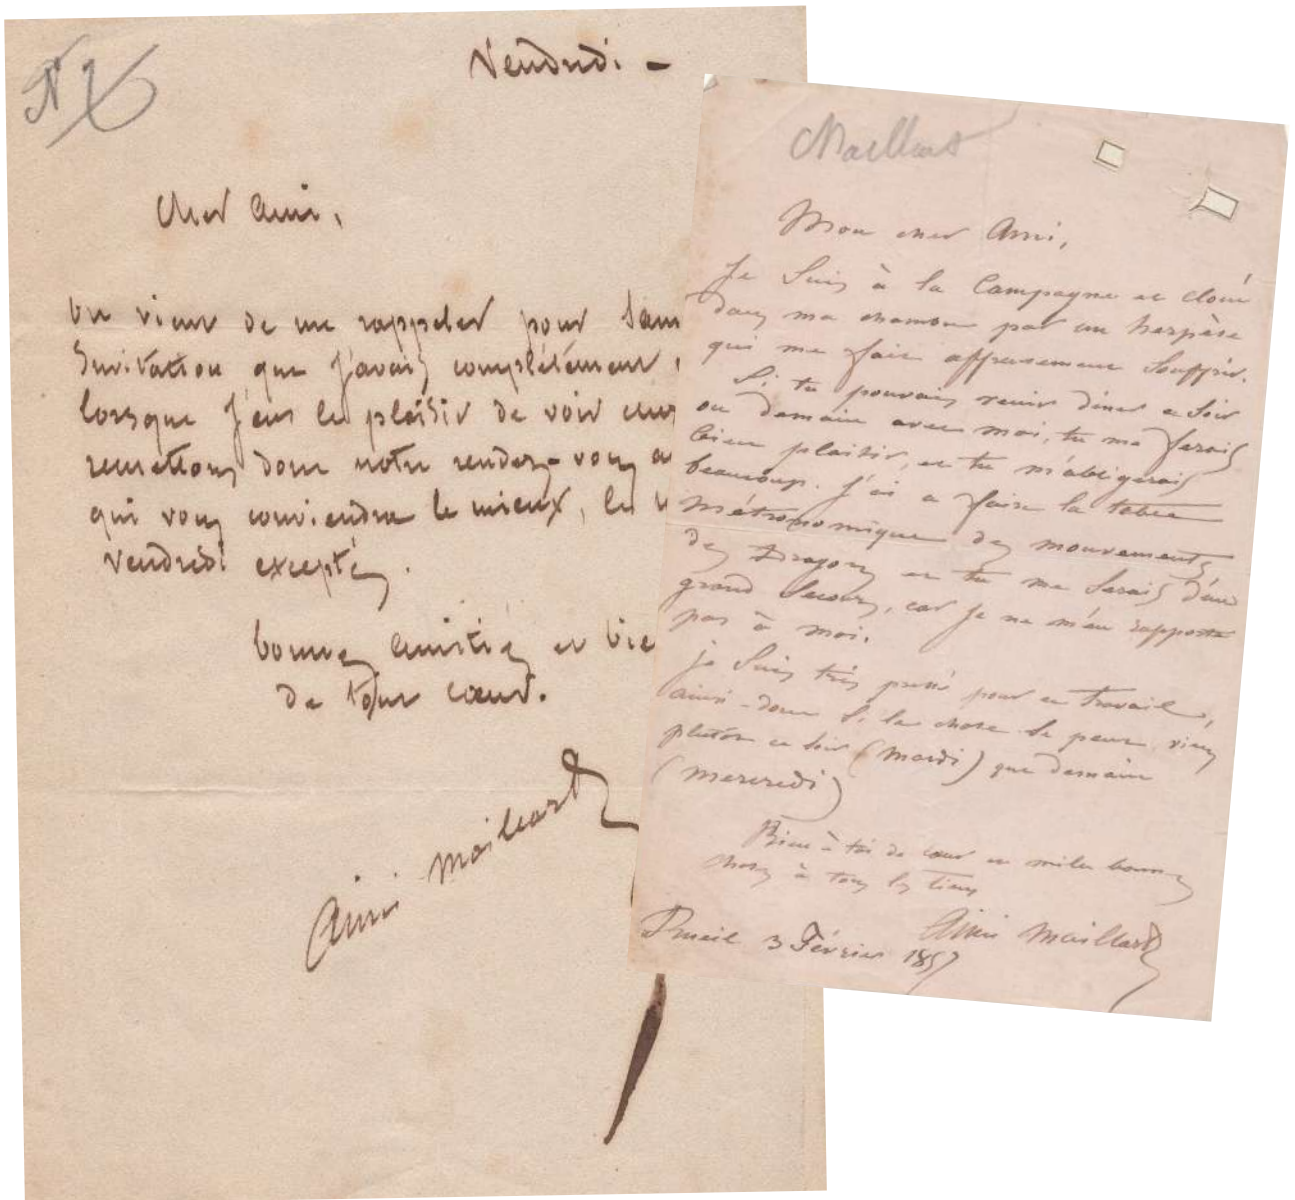 Vendredi -
Cher ami,
on vient de me rappeler pour Sam
Invitation que j'avais complétement
lorsque j'eus le plaisir de voir
remettons donc notre rendez-vous a
qui vous conviendra le mieux, le
vendredi excepté.
bonnes amitiés et bie
de tout cœur.
Aimé Maillart
Maillart
Mon cher Ami,
Je suis à la Campagne et cloué
dans ma chambre par un herpèse
qui me fait affreusement Souffrir.
Si tu pouvais venir diner ce Soir
ou demain avec moi, tu me ferais
bien plaisir, et tu m'obligerais
beaucoup. J'ai a faire la table
métronomique des mouvements
des Dragons et tu me serais d'un
grand Secours, car je ne m'en rapporte
pas à moi.
je suis très pressé pour ce travail,
ainsi-donc Si la chose Se peut, viens
plutôt ce soir (Mardi) que demain
(Mercredi)
Bien à toi de cœur et mille bonnes
choses à tous les tiens
Aimé Maillart
Rueil 3 Février 1857